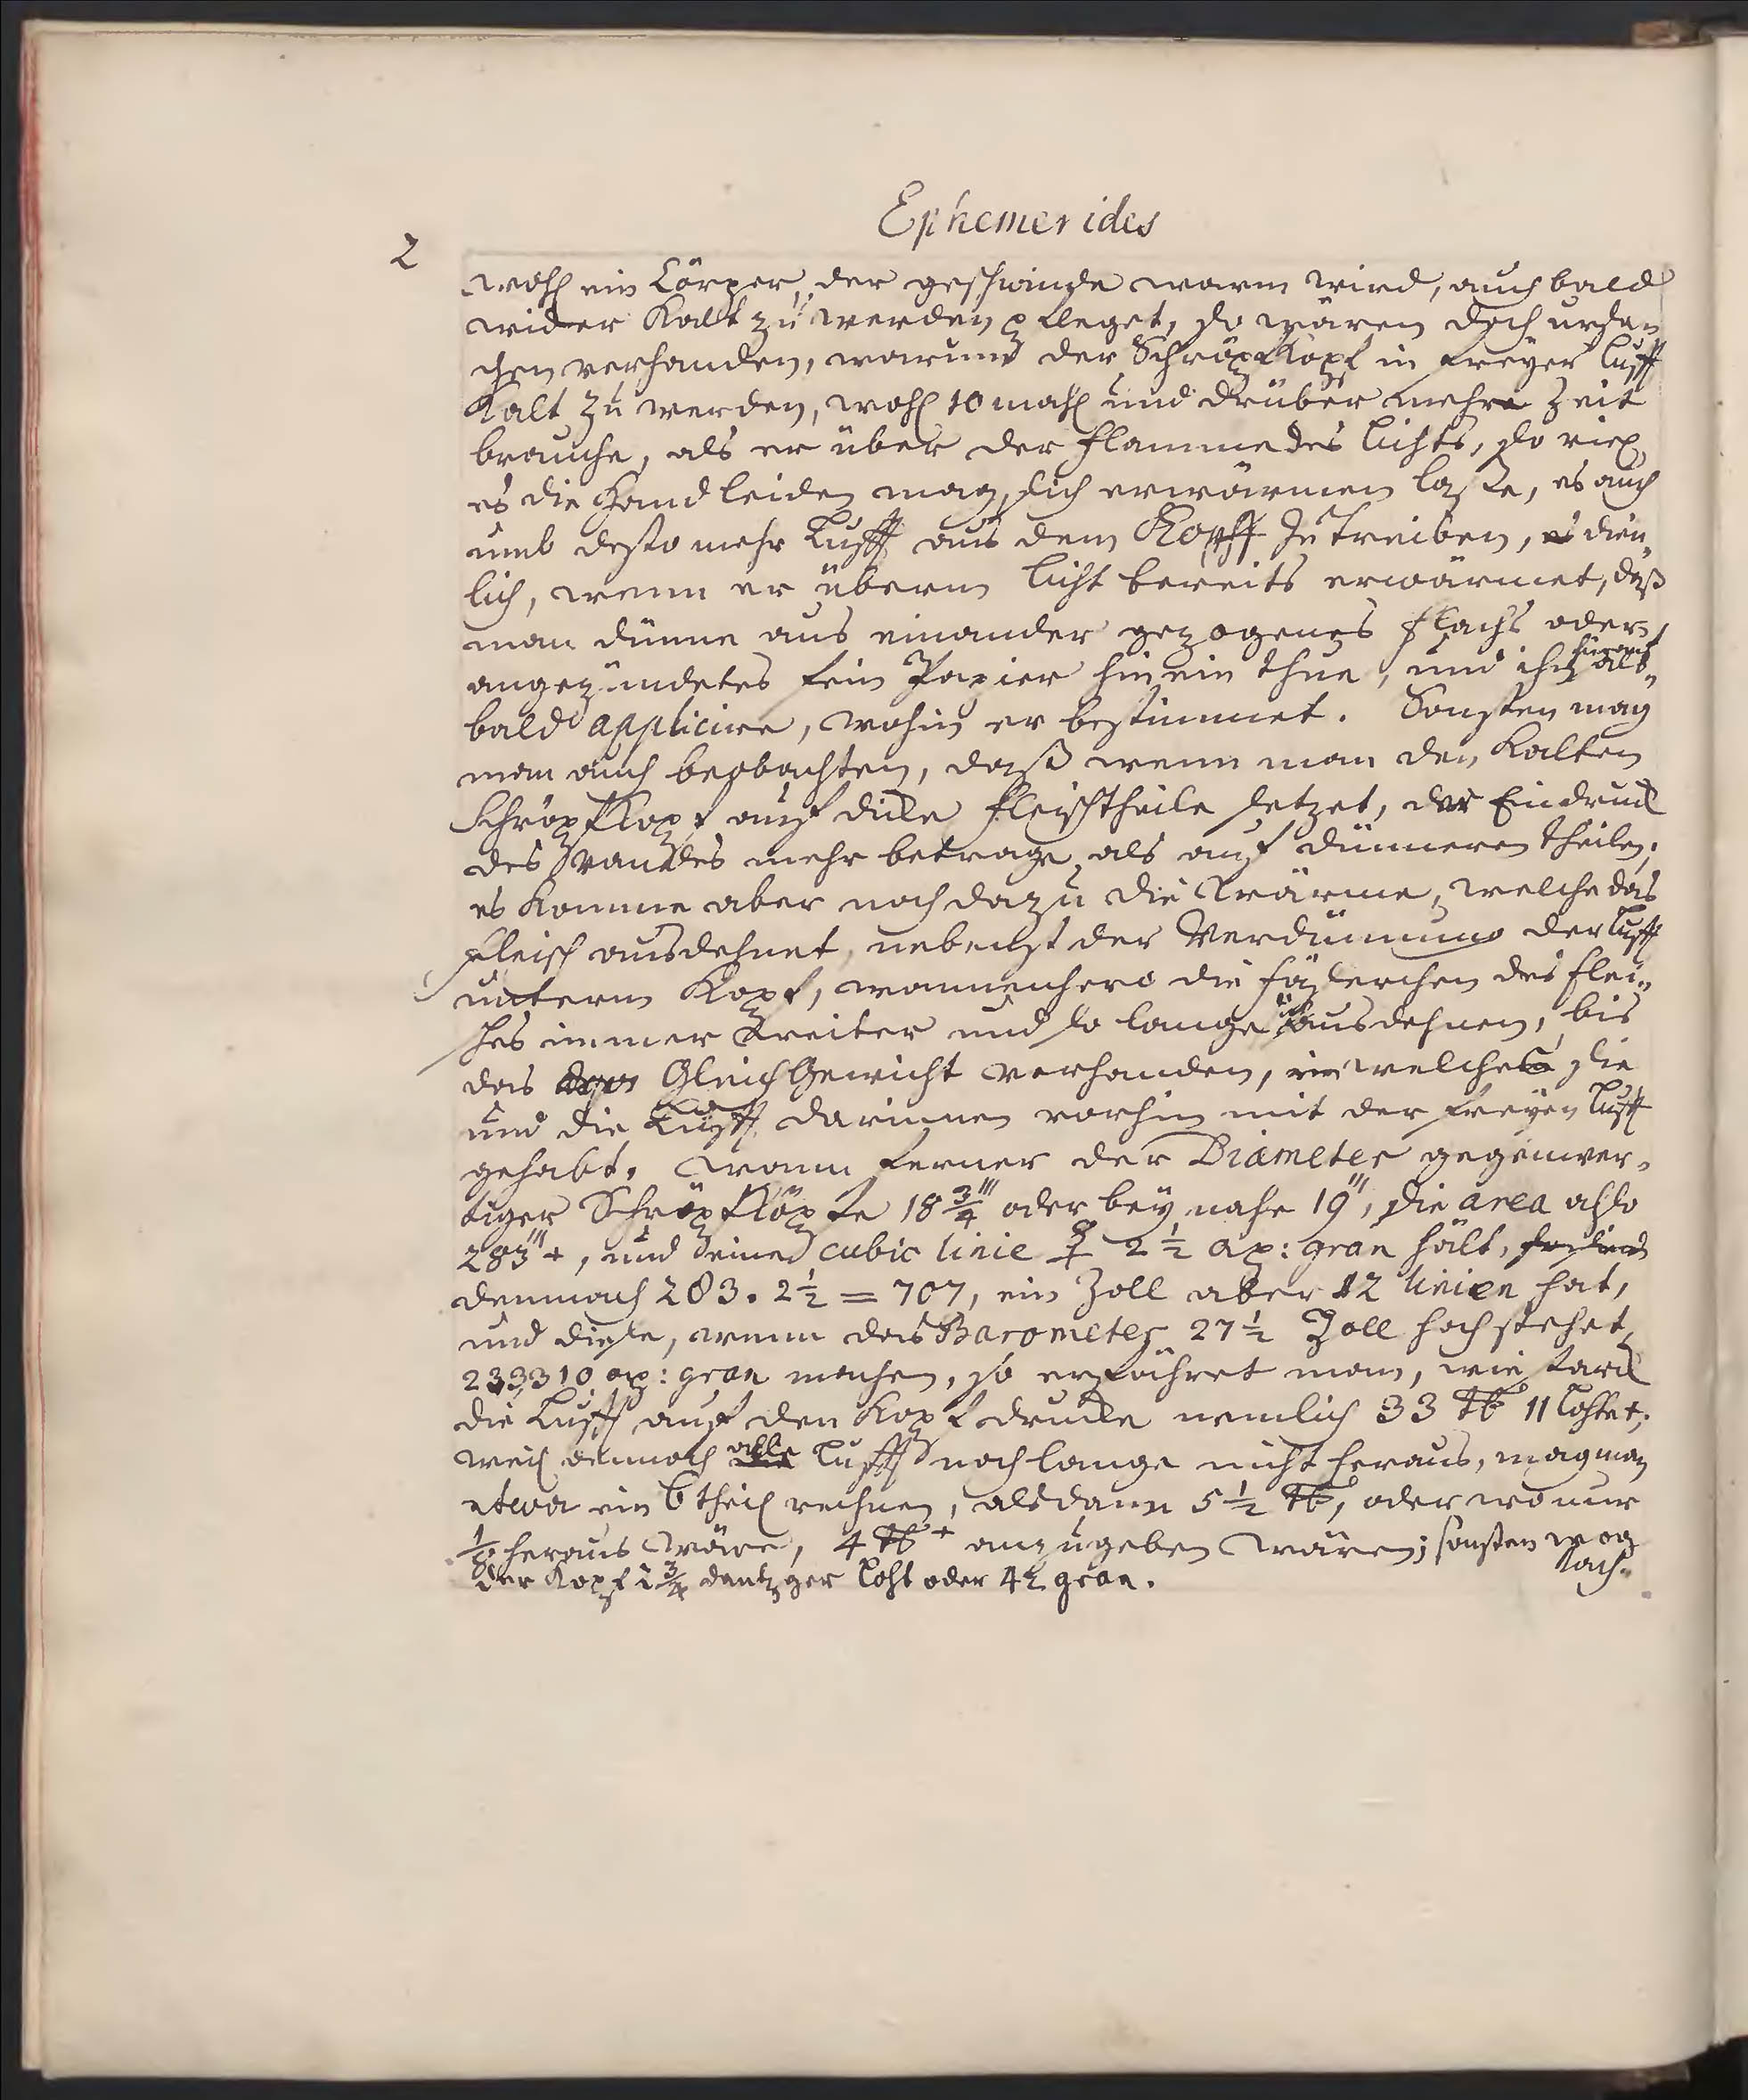 Ephemerides
2
wohl ein Cörper, der geschwinde warm wird, auch bald
wider Kalt zu werden pfleget, so wären doch ursa„
chen verhanden, warumb der SchröpfKopf in freyer Lufft
Kalt zu werden, wohl 10 mahl und drüber mehr Zeit
brauche, als er über der flamme des lichts, so viel
es die Hand leiden mag, sich erwärmen laße, es auch
umb desto mehr Lufft aus dem Kopff zu treiben, dien„
lich, wenn er überm licht bereits erwärmet, daß
man dünne aus einander gezogenes flachs oder
angezündetes fein Papier hinein thue, und ihn hierauf als„
bald applicire, wohin er bestimmet. Sonsten mag
man auch beobachten, daß wenn man den Kalten
SchröpfKopf auf dicke fleischtheile setzet, der Eindruck
des randes mehr betrage, als auf dünneren theilen;
es Komme aber noch dazu die Wärme, welche das
fleisch ausdehnet, nebenst der Verdünnung der Lufft
unterm Kopf, wannenhero die fäserchen des flei„
sches immer breiter und so lange sich ausdehnen, bis
das GleichGewicht verhanden, welches sie
und die Lufft darinnen vorhin mit der freyen Lufft
gehabt. Wann ferner der Diameter gegenwer„
tiger SchröpfKöpfe 18 3/4''' oder bey nahe 19''', die area also
283''' +, und eine cubic linie ☿ 2 1/2 ap: gran hält,
demnach 283 . 2 1/2 = 707, ein Zoll aber 12 linien hat,
und diese, wenn das Barometer 27 1/2 Zoll hoch stehet,
233310 ap: gran machen, so erfähret man, wie starck
die Lufft auf den Kopf drucke nemlich 33 ℔ 11 Loht +;
weil dennoch alle Lufft noch lange nicht heraus, mag man
etwa ein 6 theil rechnen, alsdann 5 1/2 ℔, oder wo nur
1/8 heraus wäre, 4 ℔ + anzugeben wären; sonsten wog
der Kopf 2 3/4 dantzger Loht oder 42 gran.
Nach„